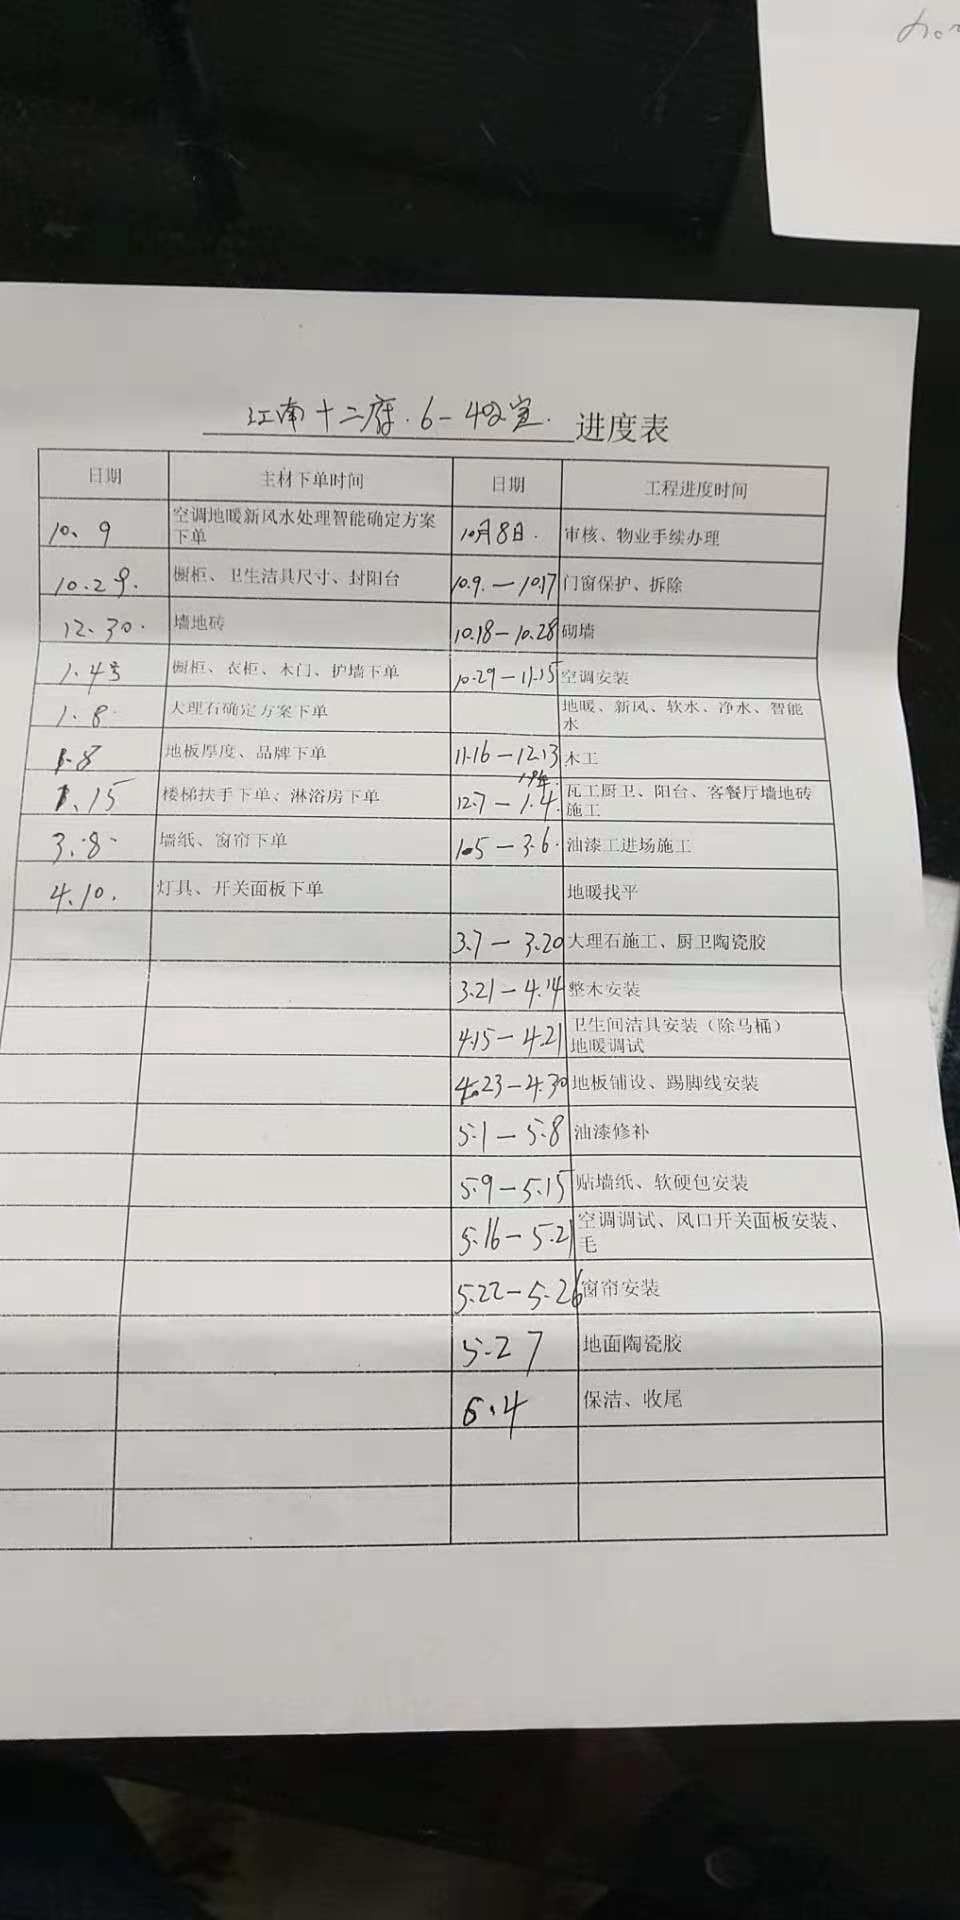 江南十二府.6-402室. 进度表
日期 主材下单时间 日期 工程进度时间
10、9 空调地暖新风水处理智能确定方案 10月8日. 审核、物业手续办理
下单
10.29. 橱柜、卫生洁具尺寸、封阳台 10.9.—10.17 门窗保护、拆除
12.30. 墙地砖 10.18-10.28 砌墙
1.4号 橱柜、衣柜、木门、护墙下单 10.29-11.15 空调安装
1.8. 大理石确定方案下单 地暖、新风、软水、净水、智能
水
1.8 地板厚度、品牌下单 11.16-12.13 木工
19年
1.15 楼梯扶手下单、淋浴房下单 12.7-1.4. 瓦工厨卫、阳台、客餐厅墙地砖
施工
3.8 墙纸、窗帘下单 1.5-3.6. 油漆工进场施工
4.10. 灯具、开关面板下单 地暖找平
3.7-3.20 大理石施工、厨卫陶瓷胶
3.21-4.14 整木安装
4.15-4.21 卫生间洁具安装（除马桶）
地暖调试
4.23-4.30 地板铺设、踢脚线安装
5.1-5.8 油漆修补
5.9-5.15 贴墙纸、软硬包安装
5.16-5.21 空调调试、风口开关面板安装、
毛
5.22-5.26 窗帘安装
5.27 地面陶瓷胶
6.4 保洁、收尾